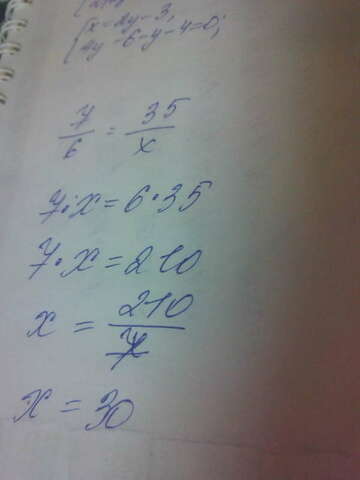 x=2y-3,
4y-6-y-4=0;
7/6 = 35/x
7·x=6·35
7·x=210
x = 210/7
x = 30